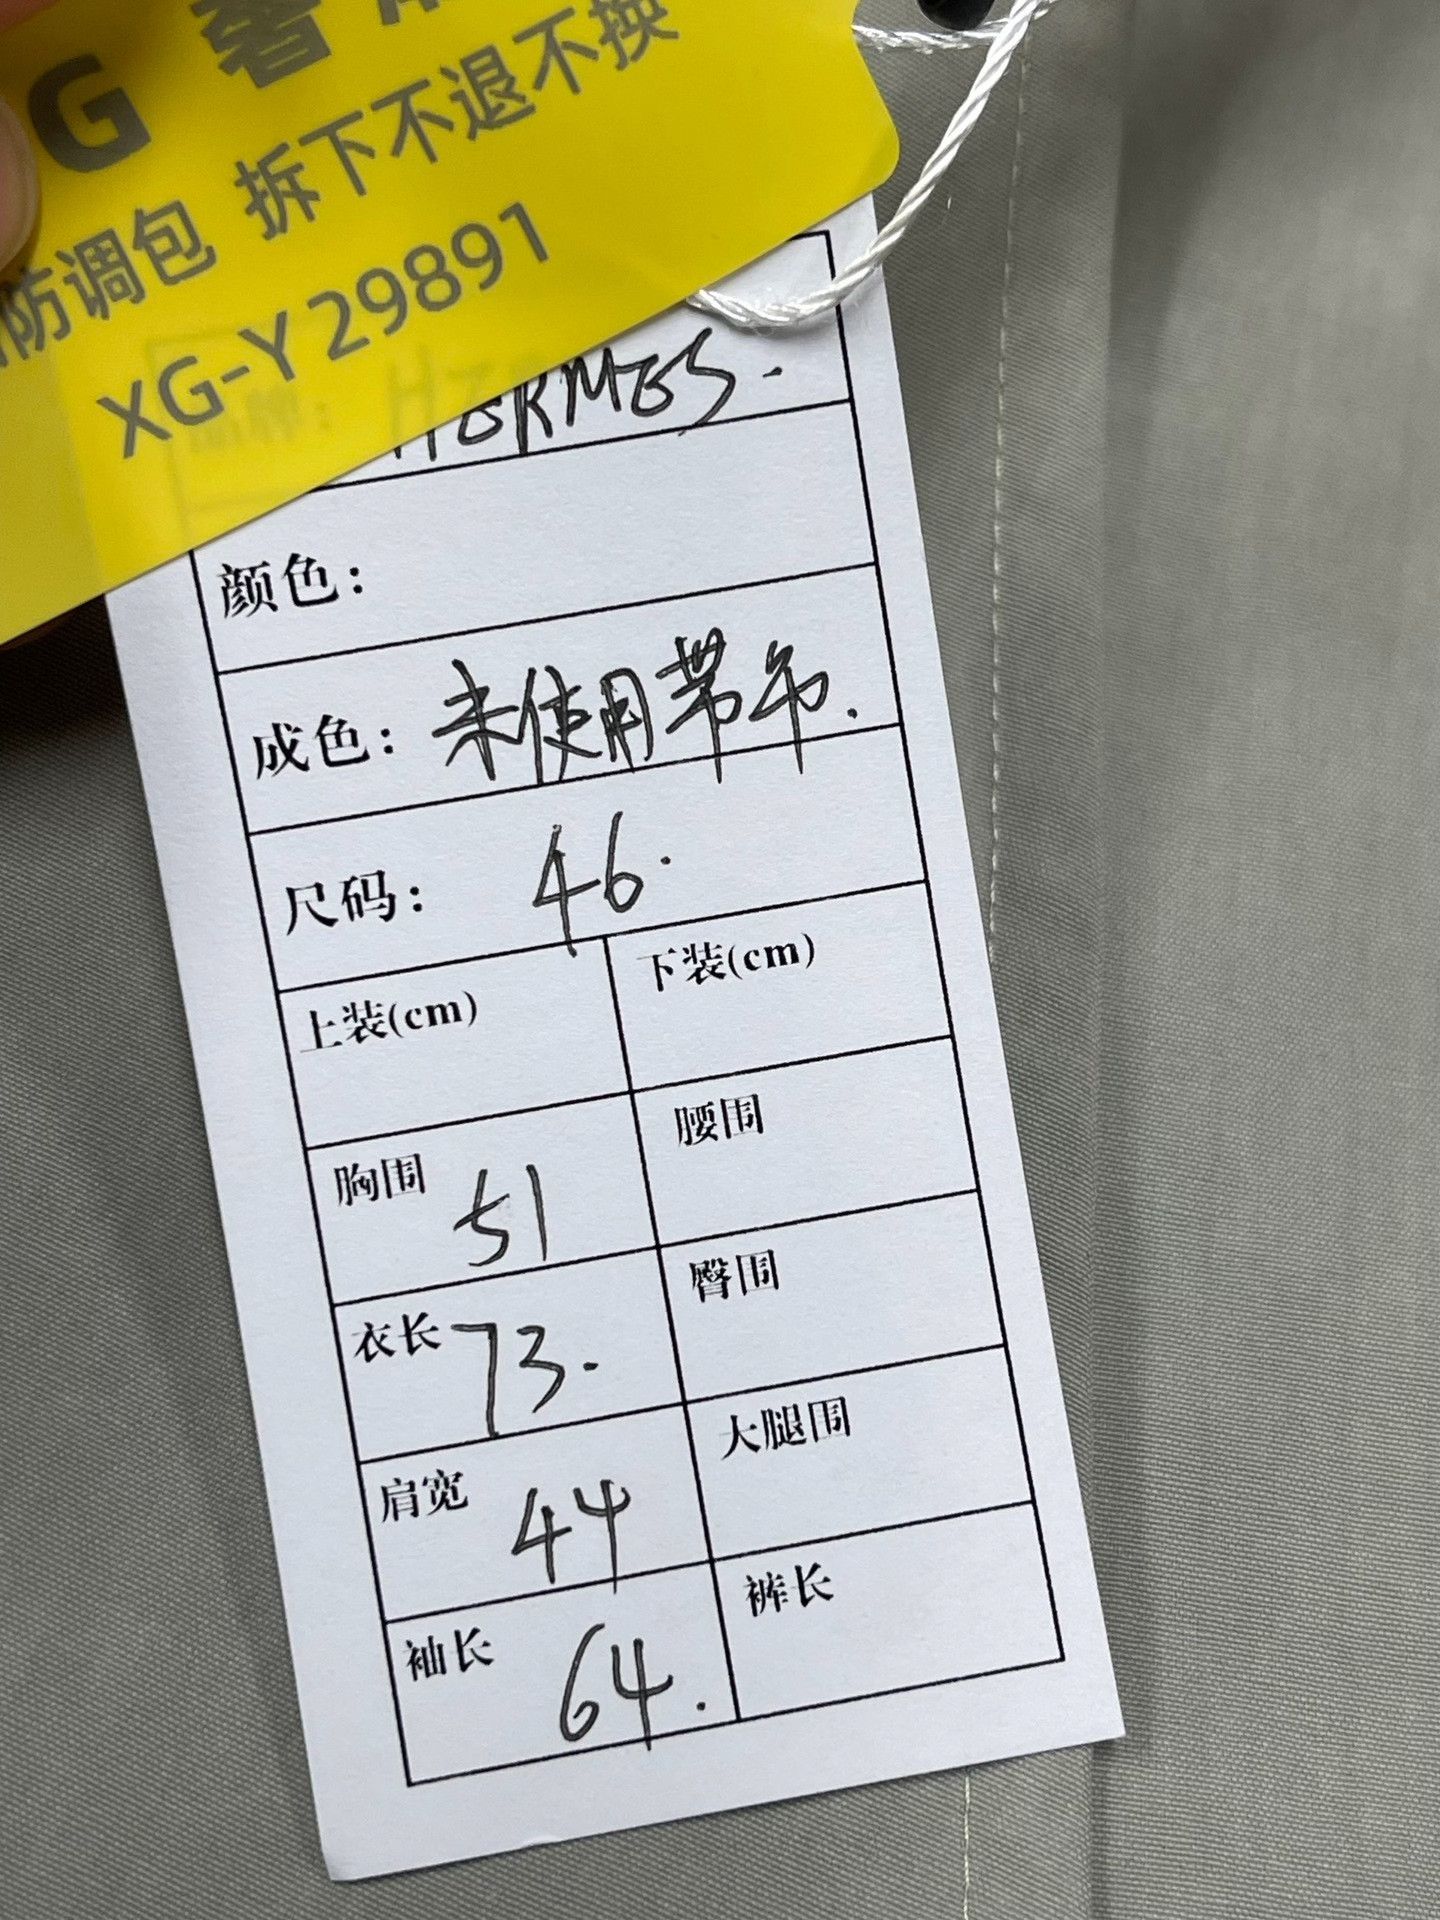 G 奢
防调包 拆下不退不换
XG-Y29891
品牌： HERMES.
颜色：
成色： 未使用带吊.
尺码： 46.
上装(cm) 下装(cm)
胸围 51 腰围
衣长 73. 臀围
肩宽 44 大腿围
袖长 64. 裤长